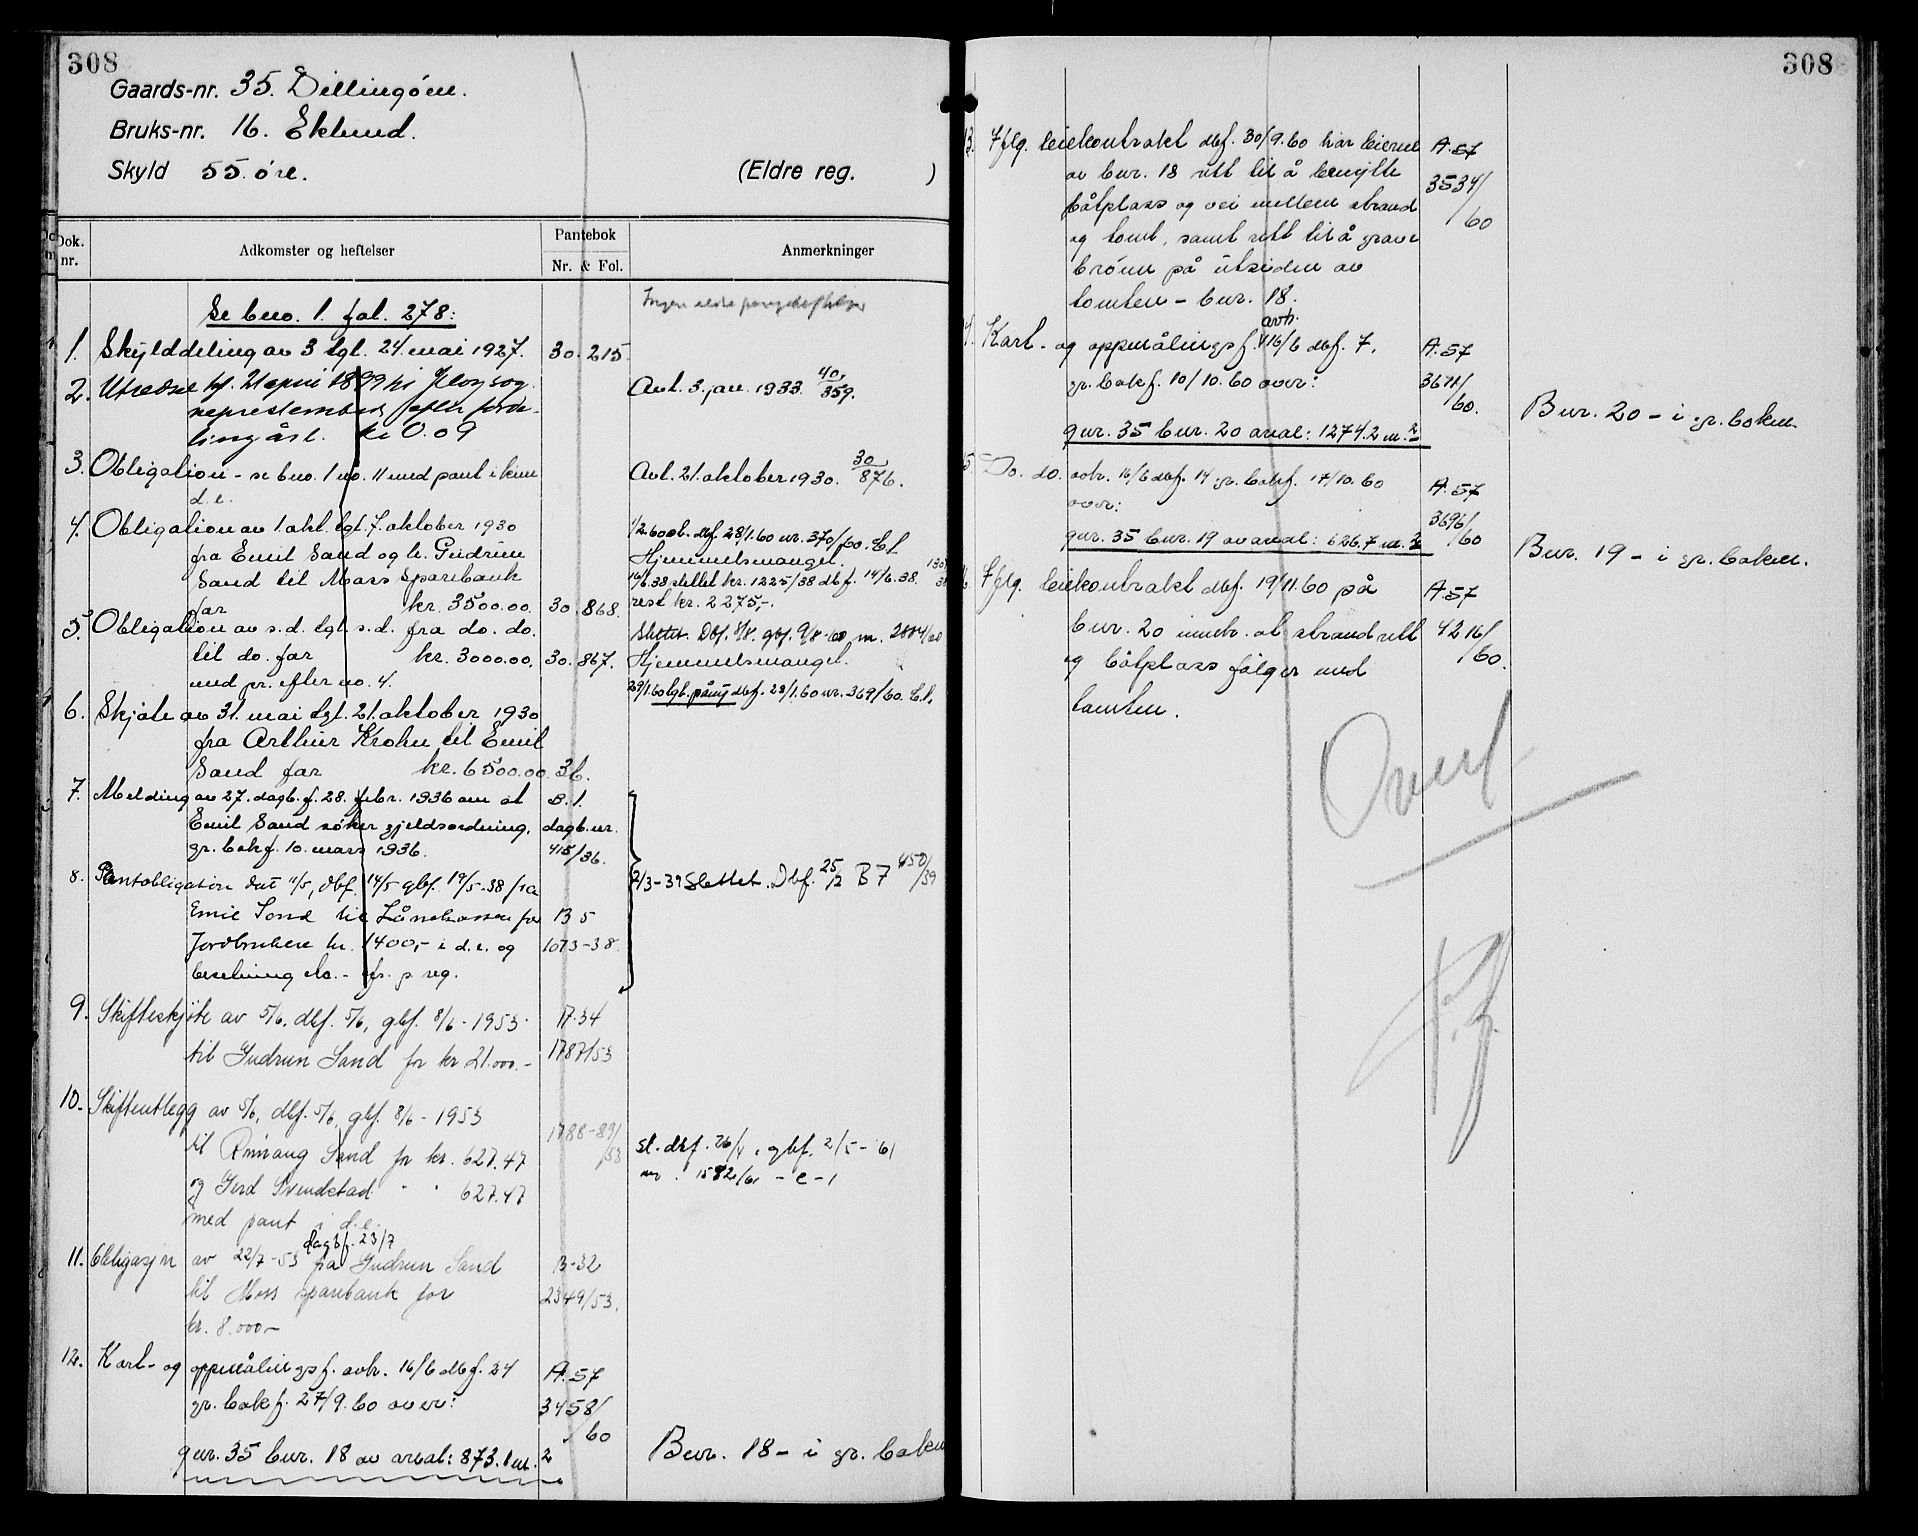 308
Gaards-nr. 35. Dillingöen.
Bruks-nr. 16. Eklund.
Skyld 55 øre.
(Eldre reg. )
Dok. nr.
Adkomster og heftelser
Pantebok
Nr. & Fol.
Anmerkninger
Se bno. 1. fol. 278:
Ingen eldre pengeheftelser
1. Skylddeling av 3 tgl. 24. mai 1927. 30. 215.
2. Utredse tgl. 21 april 1899 til
Avl. 3. jan. 1933. 40/359.
lingåst. kr 0.09
3. Obligation - se bno. 1 no. 11 med pant i hine
d. e.
Avl. 21. oktober 1930. 30/876.
4. Obligation av 1. okt. tgl. 7. oktober 1930
fra Emil Sand og h. Gudrun
Sand til Moss Sparebank
for kr. 3500.00. 30. 868.
dbf. 28/1.60 nr. 370/60. C1
Hjemmelsmangel.
16/6.38 slettet kr. 1225/38 dbf. 14/6.38.
rest kr. 2275,-.
5. Obligation av s.d. tgl. s.d. fra do. do.
til do. for kr. 3000.00, 30. 867.
med pr. efter no. 4.
Slettet. Dbf. 8/8. gbf. 9/8-60 nr. 2804/60
Hjemmelsmangel.
29/1.60 tgl. påny dbf. 28/1.60 nr. 369/60. C1.
6. Skjøte av 31. mai tgl. 21. oktober 1930
fra Arthur Krohn til Emil
Sand for kr. 6500.00. 36.
7. Melding av 27. dagb.f. 28. febr. 1936 om at
Emil Sand søker gjeldsordning,
gr. bokf. 10. mars 1936.
B. 1.
dagb.nr.
415/36.
8. Pantobligasion dat 11/5, dbf. 14/5 gbf. 19/5-38 fra
Emil Sand til Lånekassen for
Jordbrukere kr. 1400,- i d.e. og
besetning m.m. - jfr. p reg.
B 5
1073-38.
2/3-39 Slettet. Dbf. 25/2 B 7 450/39
9. Skifteskjøte av 5/6, dbf. 5/6, gbf. 8/6-1953
til Gudrun Sand for kr 21.000.-
17-34
1787/53
10. Skifteutlegg av 5/6, dbf. 5/6, gbf. 8/6-1953
til Rønnaug Sand for kr. 627.47
og Gerd Svendstad " " 627.47
med pant i d.e.
1788-89/53
sl. dbf. 26/4, gbf. 2/5-61
nr. 1582/61 - C-1
11. Obligasjon av 22/7-53 dagbf. 23/7 fra Gudrun Sand
til Moss sparebank for
kr. 8.000-
B-32
2349/53.
12. Kart- og oppmålingsf. avh. 16/6 dbf. 24
gr. bokf. 27/9.60 over:
gnr. 35 bnr. 18 av areal: 873.1 m.2
A. 57
3458/60
Bnr. 18 - i gr. boken
308
13. Iflg. leiekontrakt dbf. 30/9.60 har leieren
av bnr. 18 rett til å benytte
båtplass og vei mellem strand
og tomt, samt rett til å grave
brönn på utsiden av
tomten - bnr. 18.
A. 57
3534/60
Kart- og oppmålingsf. avh. 16/6 dbf. 7,
gr. bokf. 10/10.60 over:
gnr. 35 bnr. 20 areal: 1274.2 m.2
A. 57
3671/60.
Bnr. 20 - i gr. boken.
Do. do. avh. 16/6 dbf. 14 gr. bokf. 17/10.60
over:
gnr. 35 bnr. 19 av areal: 626.7 m.2
A. 57
3696/60
Bnr. 19 - i gr. boken.
Iflg. leiekontrakt dbf. 19/11.60 på
bnr. 20 innebr. at strandrett
og båtplass følger med
tomten.
A. 57
4216/60.
Overf